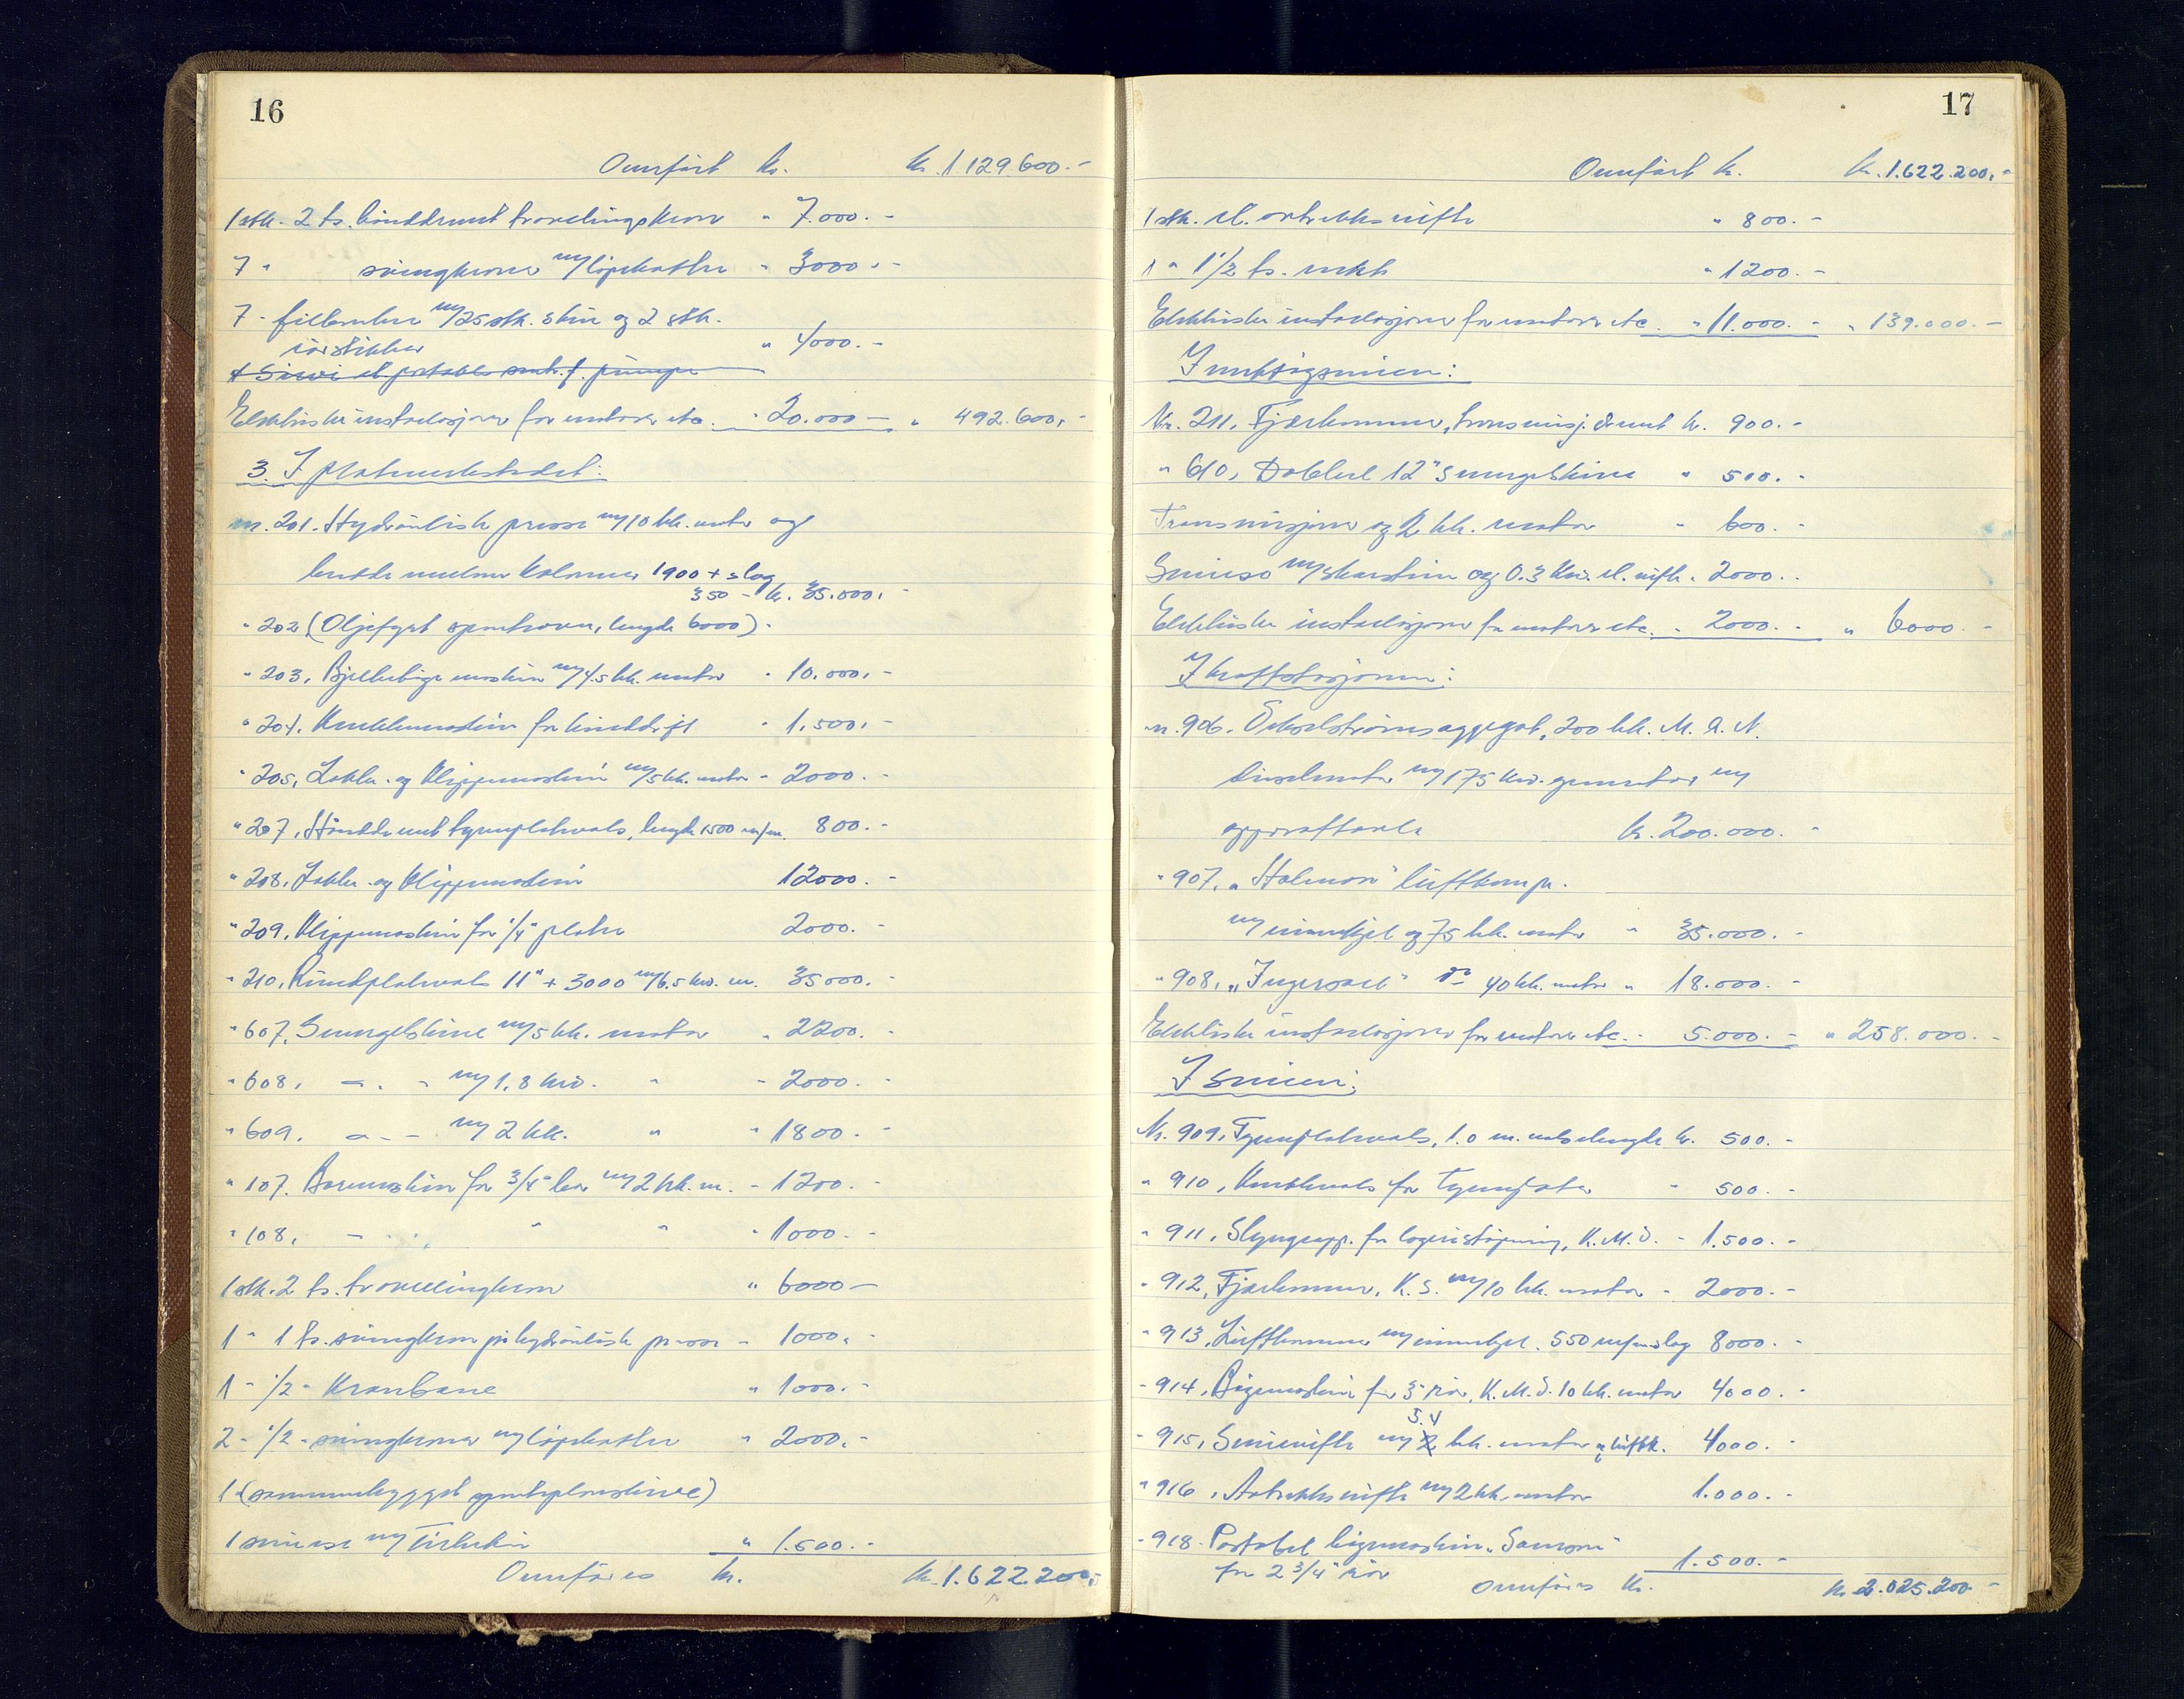 16
Omført kr. kr. 1.129.600.-
1 stk. 2 ts. hånddrevet travelingskran " 7.000.-
7 " svingkraner m/løpekatter " 3000.-
7 - filbenker m/25 stk. skru og 2 stk.
rørstikker " 4000.-
Elektriske installasjoner for motorer etc. " 20.000.- " 492.600.-
3. I platverkstedet:
nr. 201. Hydraulisk presse m/10 hk. motor og
bredde mellem kolonner 1900 + slag
350 - kr. 35.000.-
" 202 (Oljefyrt ovn, lengde 6000).
" 203. Bjelkebøye maskin m/4.5 hk. motor " 10.000.-
" 204. Knekkemaskin for hånddrift " 1.500.-
" 205. Lokke- og klippemaskin m/5 hk. motor - 2000.-
" 207. Hånddrevet tynnplatevals, lengde 1500 m/m. 800.-
" 208. Lokke- og klippemaskin 12000.-
" 209. Klippemaskin for 1/4" plater 2000.-
" 210. Rundplatevals 11" + 3000 m/6.5 kw. m. 35000.-
" 607. Smergelskive m/5 hk. motor " 2200.-
" 608. - " - m/1.8 kw. " - 2000.-
" 609. - " - m/2 hk. " " 1800.-
" 107. Boremaskin for 3/4" bor m/2 hk. m. - 1200.-
" 108. - " - " " " 1000.-
1 stk. 2 ts. travelingkran " 6000-
1 " 1 ts. svingkran på hydraulisk presse - 1000.-
1 - 1/2 - Kranbane " 1000.-
2 - 1/2 - svingkraner m/løpekatter " 2000.-
1 (sammenbygget)
1 smiesse m/ " 1.500.-
Omføres kr. kr. 1.622.200.-
17
Omført kr. kr. 1.622.200.-
1 stk. el. avtrekksvifte " 800.-
1 " 1 1/2 ts. vekt " 1200.-
Elektriske installasjoner for motorer etc. " 11.000.- " 139.000.-
I verktøysmien:
Nr. 211. Fjærhammer, transmisj. drevet kr. 900.-
" 610. Dobbel 12" smergelskive " 500.-
Transmisjon og 2 hk. motor " 600.-
Smiesse m/skorstein og 0.3 kw. el. vifte. 2000.-
Elektriske installasjoner for motorer etc. - 2000.- " 6000.-
I kraftstasjonen:
nr. 906. aggregat, 200 hk. M. A. N.
dieselmotor m/175 kw. generator m/
apparattavle kr. 200.000.-
" 907. "Holman" luftkompr.
m/ og 75 hk. motor " 35.000.-
" 908. "Ingersoll" do 40 hk. motor " 18.000.-
Elektriske installasjoner for motorer etc. - 5.000.- " 258.000.-
I smien:
Nr. 909. Tynnplatevals, 1.0 m. valselengde kr. 500.-
" 910. Knekkevals for tynnplater " 500.-
" 911. Slyngeapp. for lagerstøpning, K.M.V. - 1.500.-
" 912. Fjærhammer, K.S. m/10 hk. motor - 2000.-
" 913. Lufthammer m/ 550 m/m slag 8000.-
- 914. Bøyemaskin for 3" rør, K.M.V. 10 hk. motor 4000.-
5.4
- 915. Smievifte m/ 2 hk. motor 4000.-
" 916. Avtrekksvifte m/2 hk. motor 1.000.-
- 918. Portabel bøyemaskin "Samson"
for 2 3/4" rør 1.500.-
Omføres kr. kr. 2.025.200.-